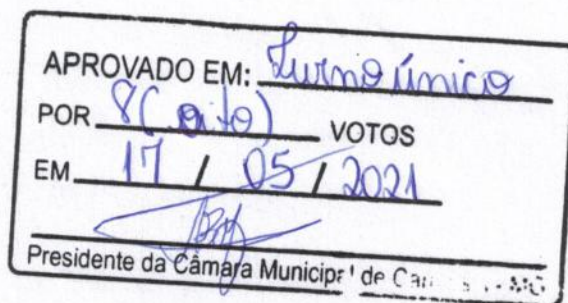 APROVADO EM: Turno único
POR 8 (oito) VOTOS
EM 17 / 05 / 2021
Presidente da Câmara Municipal de